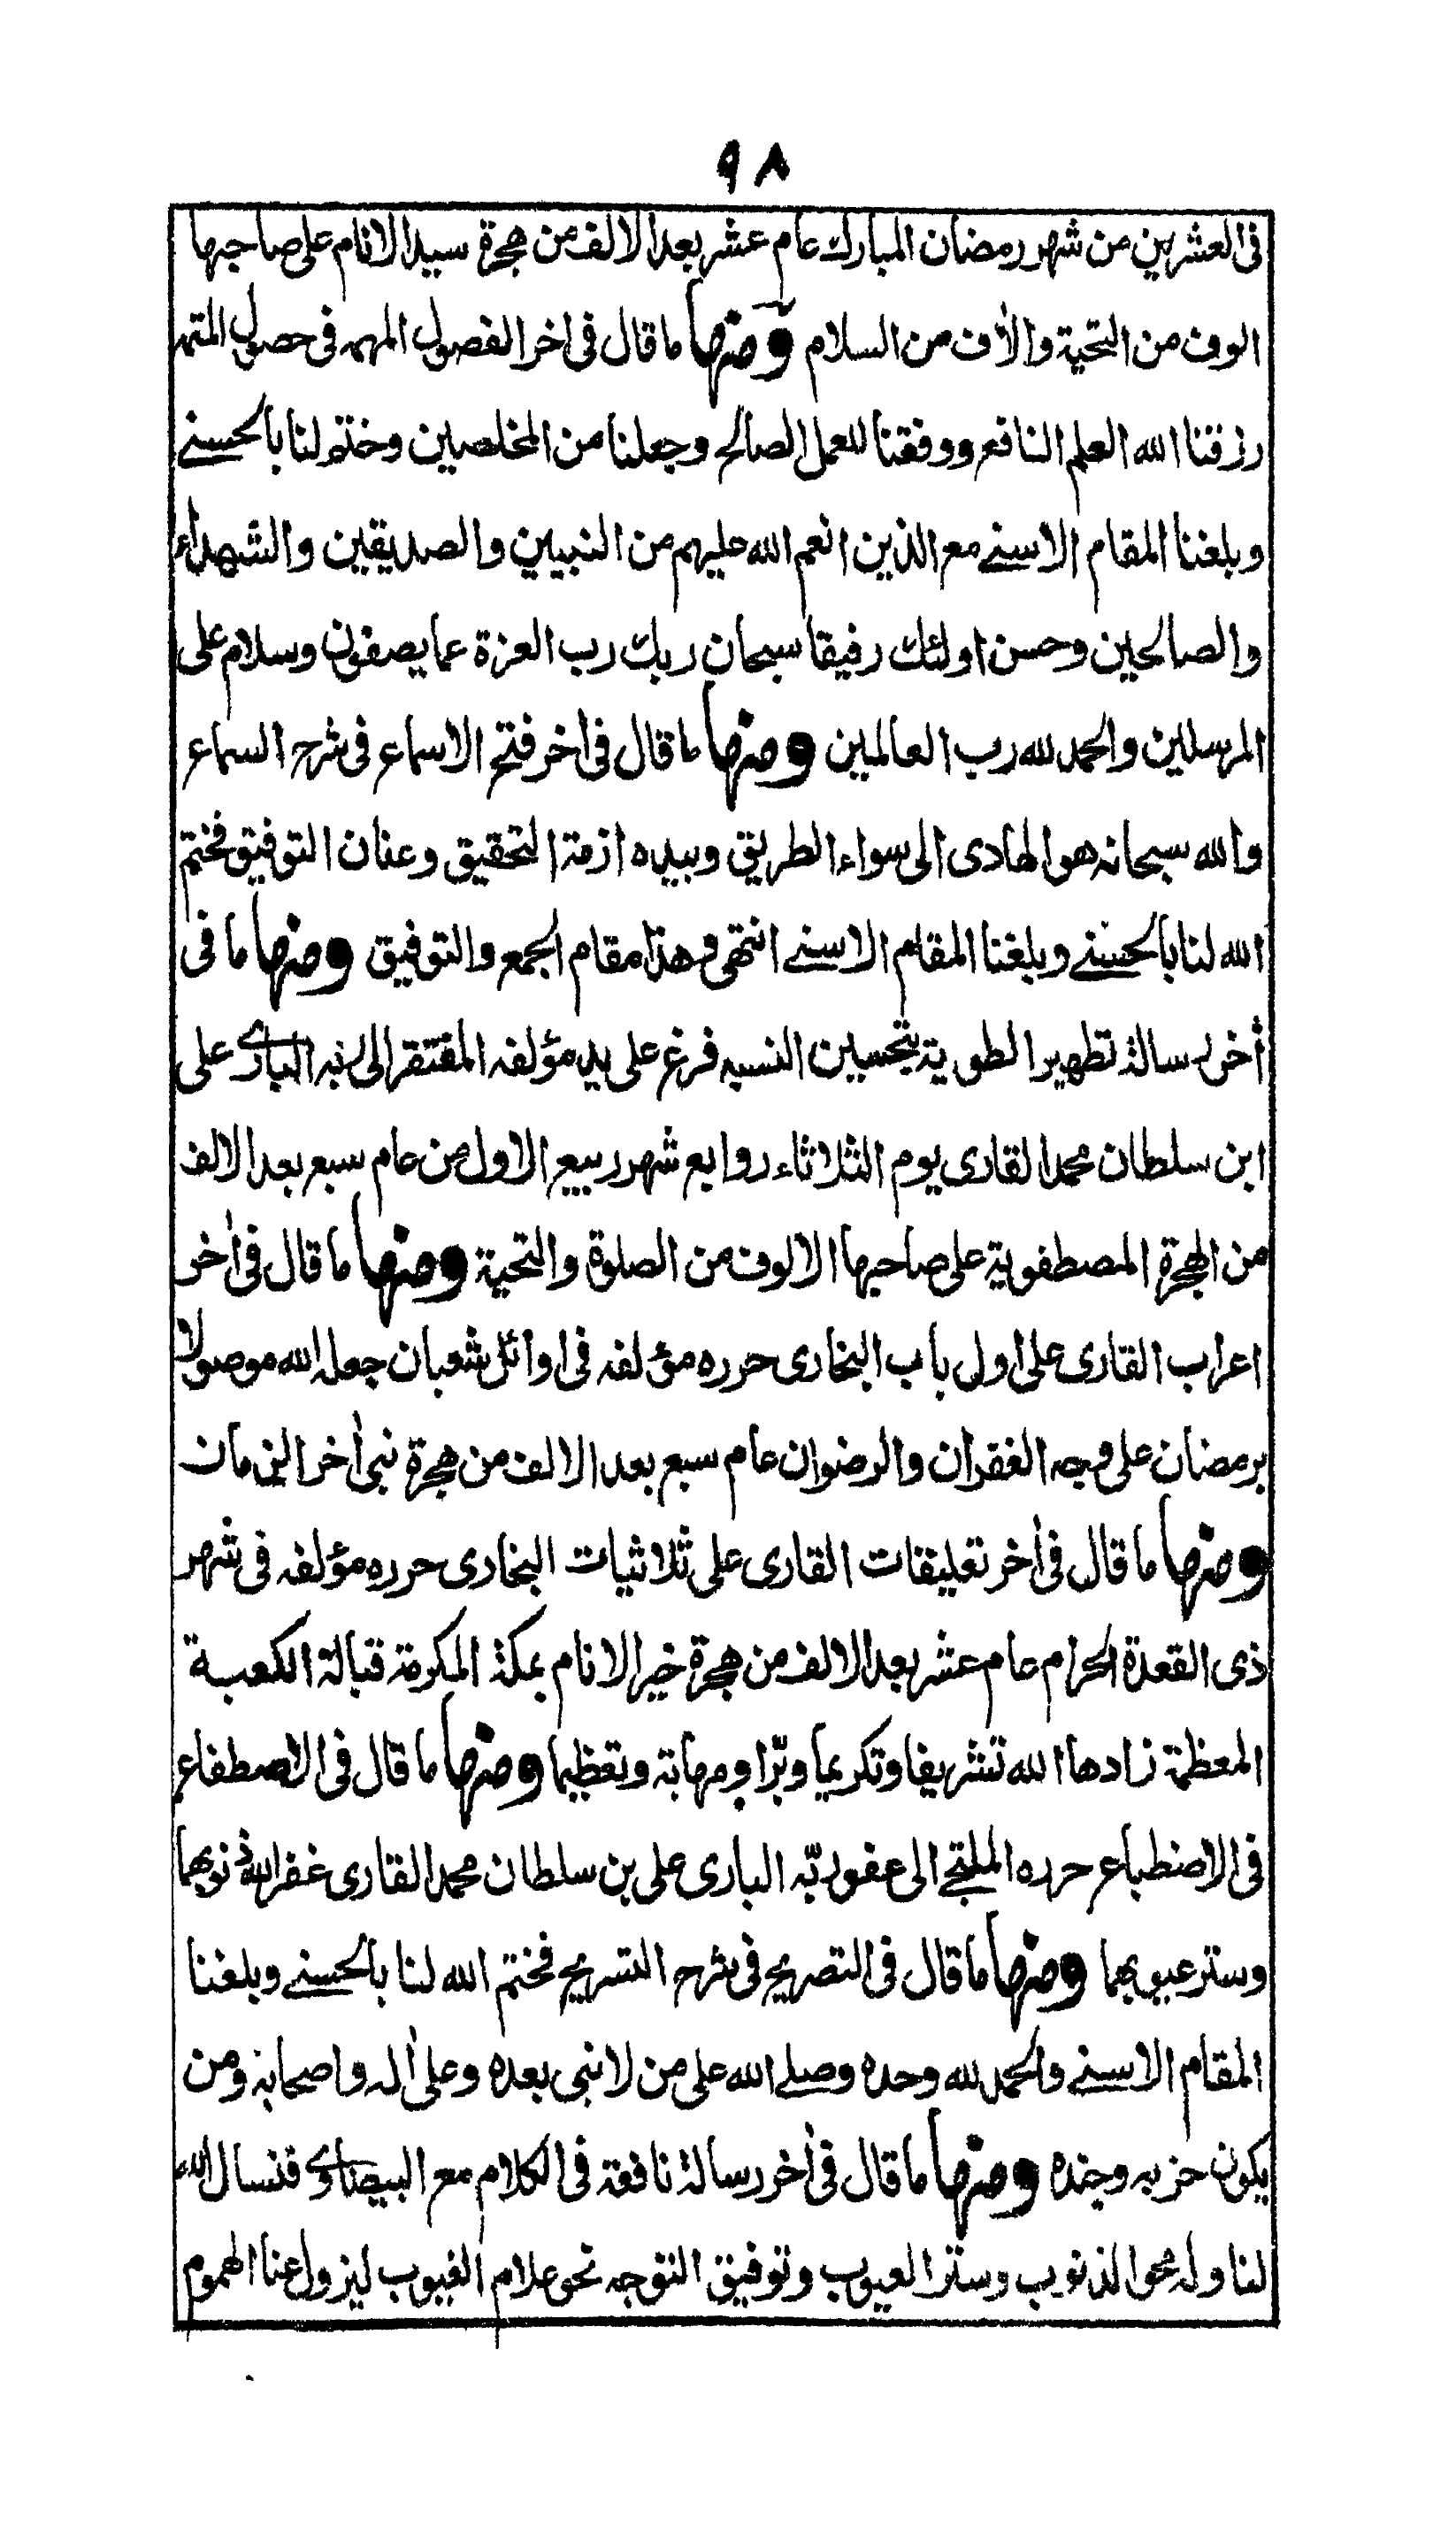 ٩٨
فى العشرين من شهر رمضان المبارك عام عشر بعد الالف من هجرة سيد الانام على صاحبها
الوف من التحية والاف من السلام ومنها ما قال فى اخر الفصول المهمه فى حصول المتمه
رزقنا الله العلم النافع ووفقنا للعمل الصالح وجعلنا من المخلصين وختم لنا بالحسنے
وبلغنا المقام الاسنے مع الذين انعم الله عليهم من النبيين والصديقين والشهداء
والصالحين وحسن اولئك رفيقا سبحان ربك رب العزة عما يصفون وسلام على
المرسلين والحمد لله رب العالمين ومنها ما قال فى اخر فتح الاسماع فى شرح السماع
والله سبحانه هو الهادى الى سواء الطريق وبيده ازمة التحقيق وعنان التوفيق فختم
الله لنا بالحسنے وبلغنا المقام الاسنے انتهى وهذا مقام الجمع والتوفيق ومنها ما فى
أخر رسالة تطهير الطوية بتحسين النسيه فرغ على يد مؤلفه المفتقر الى ربه البارے على
ابن سلطان محمد القارى يوم الثلاثاء روابع شهر ربيع الاول من عام سبع بعد الالف
من الهجرة المصطفوية على صاحبها الالوف من الصلوة والتحية ومنها ما قال فى أخر
اعراب القارى على اول باب البخارى حرره مؤلفه فى اوائل شعبان جعله الله موصولا
برمضان على وجه الغفران والرضوان عام سبع بعد الالف من هجرة نبى أخر الزمان
ومنها ما قال فى أخر تعليقات القارى على ثلاثيات البخارى حرره مؤلفه فى شهر
ذى القعدة الحرام عام عشر بعد الالف من هجرة خير الانام بمكة المكرمة قبالة الكعبة
المعظمة زادها الله تشريفا وتكريما وبّرا ومهابة وتعظيما ومنها ما قال فى الاصطفاع
فى الاضطباع حرره الملتجے الى عفو ربّه البارى على بن سلطان محمد القارى غفر الله ذنوبهما
وستر عيوبهما ومنها ما قال فى التصريح فى شرح التسريح فختم الله لنا بالحسنے وبلغنا
المقام الاسنے والحمد لله وحده وصلے الله على من لا نبى بعده وعلى أله واصحابه ومن
يكون حزبه وجنده ومنها ما قال فى أخر رسالة نافعة فى الكلام مع البيضاوے فنسال الله
لنا وله محو الذنوب وستر العيوب وتوفيق التوجه نحو علام الغيوب ليزول عنا الهموم